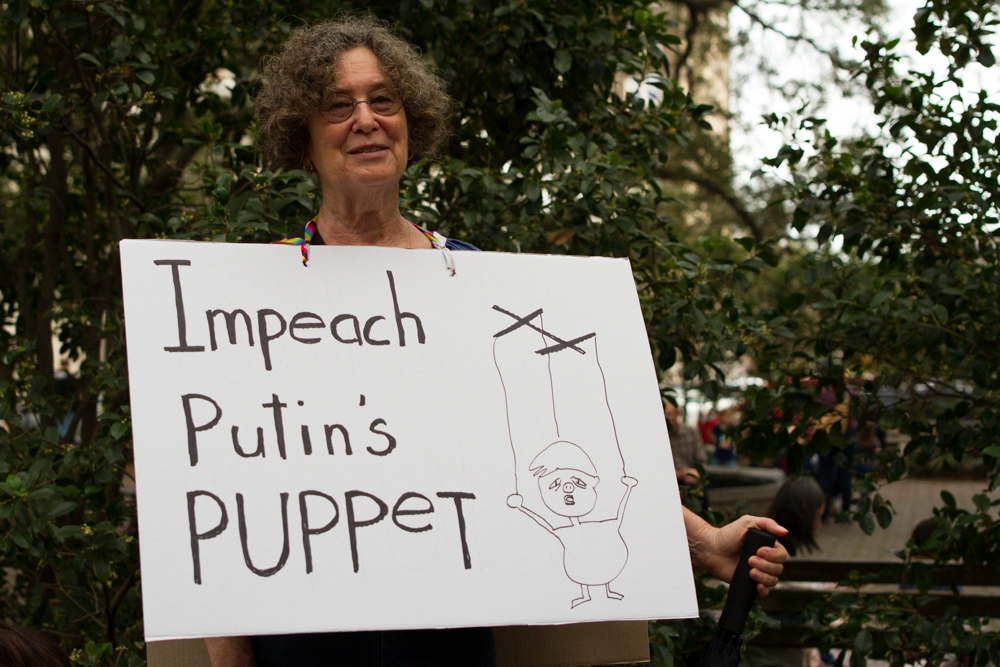 Impeach
Putin's
PUPPET